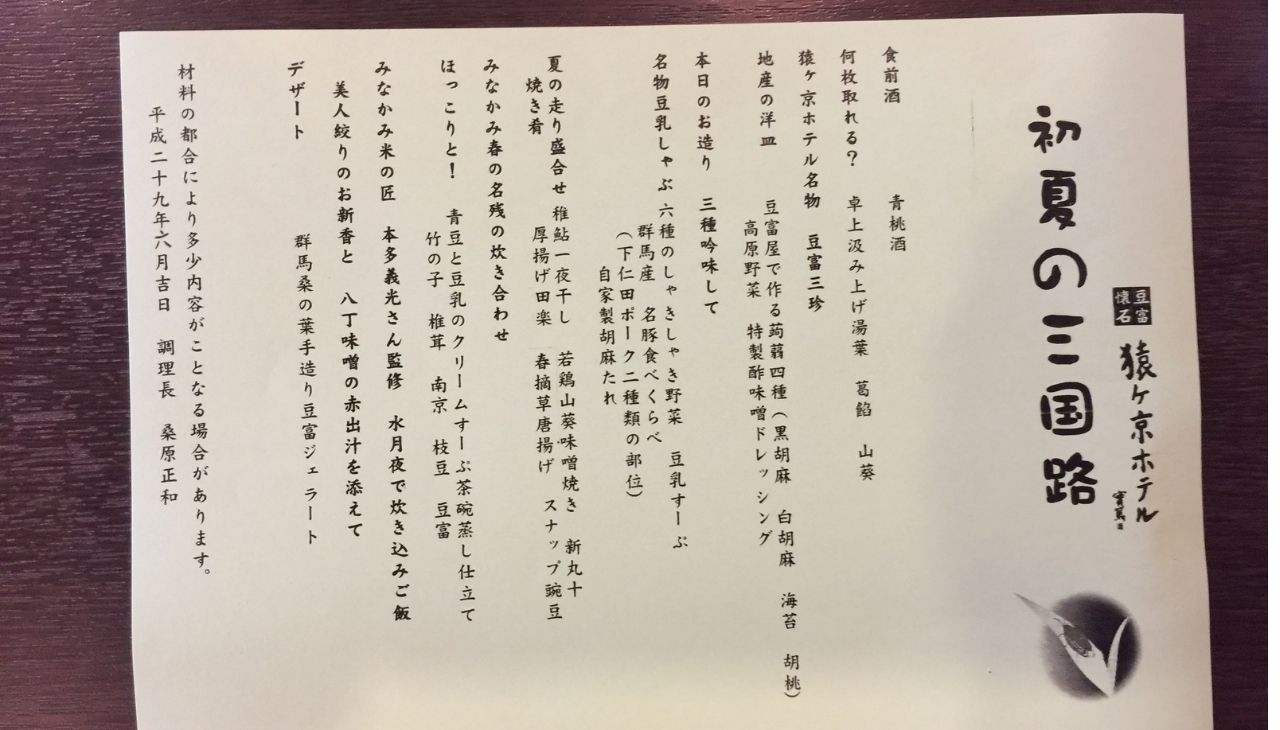 豆富懐石 猿ヶ京ホテル
初夏の三国路
食前酒 青桃酒
何枚取れる? 卓上汲み上げ湯葉 葛餡 山葵
猿ヶ京ホテル名物 豆富三珍
地産の洋皿 豆富屋で作る蒟蒻四種(黒胡麻 白胡麻 海苔 胡桃)
高原野菜 特製酢味噌ドレッシング
本日のお造り 三種吟味して
名物豆乳しゃぶ 六種のしゃきしゃき野菜 豆乳すーぷ
群馬産 名豚食べくらべ
(下仁田ポーク二種類の部位)
自家製胡麻たれ
夏の走り盛合せ 稚鮎一夜干し 若鶏山葵味噌焼き 新丸十
焼き肴 厚揚げ田楽 春摘草唐揚げ スナップ豌豆
みなかみ春の名残の炊き合わせ
ほっこりと! 青豆と豆乳のクリームすーぷ茶碗蒸し仕立て
竹の子 椎茸 南京 枝豆 豆富
みなかみ米の匠 本多義光さん監修 水月夜で炊き込みご飯
美人絞りのお新香と 八丁味噌の赤出汁を添えて
デザート 群馬桑の葉手造り豆富ジェラート
材料の都合により多少内容がことなる場合があります。
平成二十九年六月吉日 調理長 桑原正和